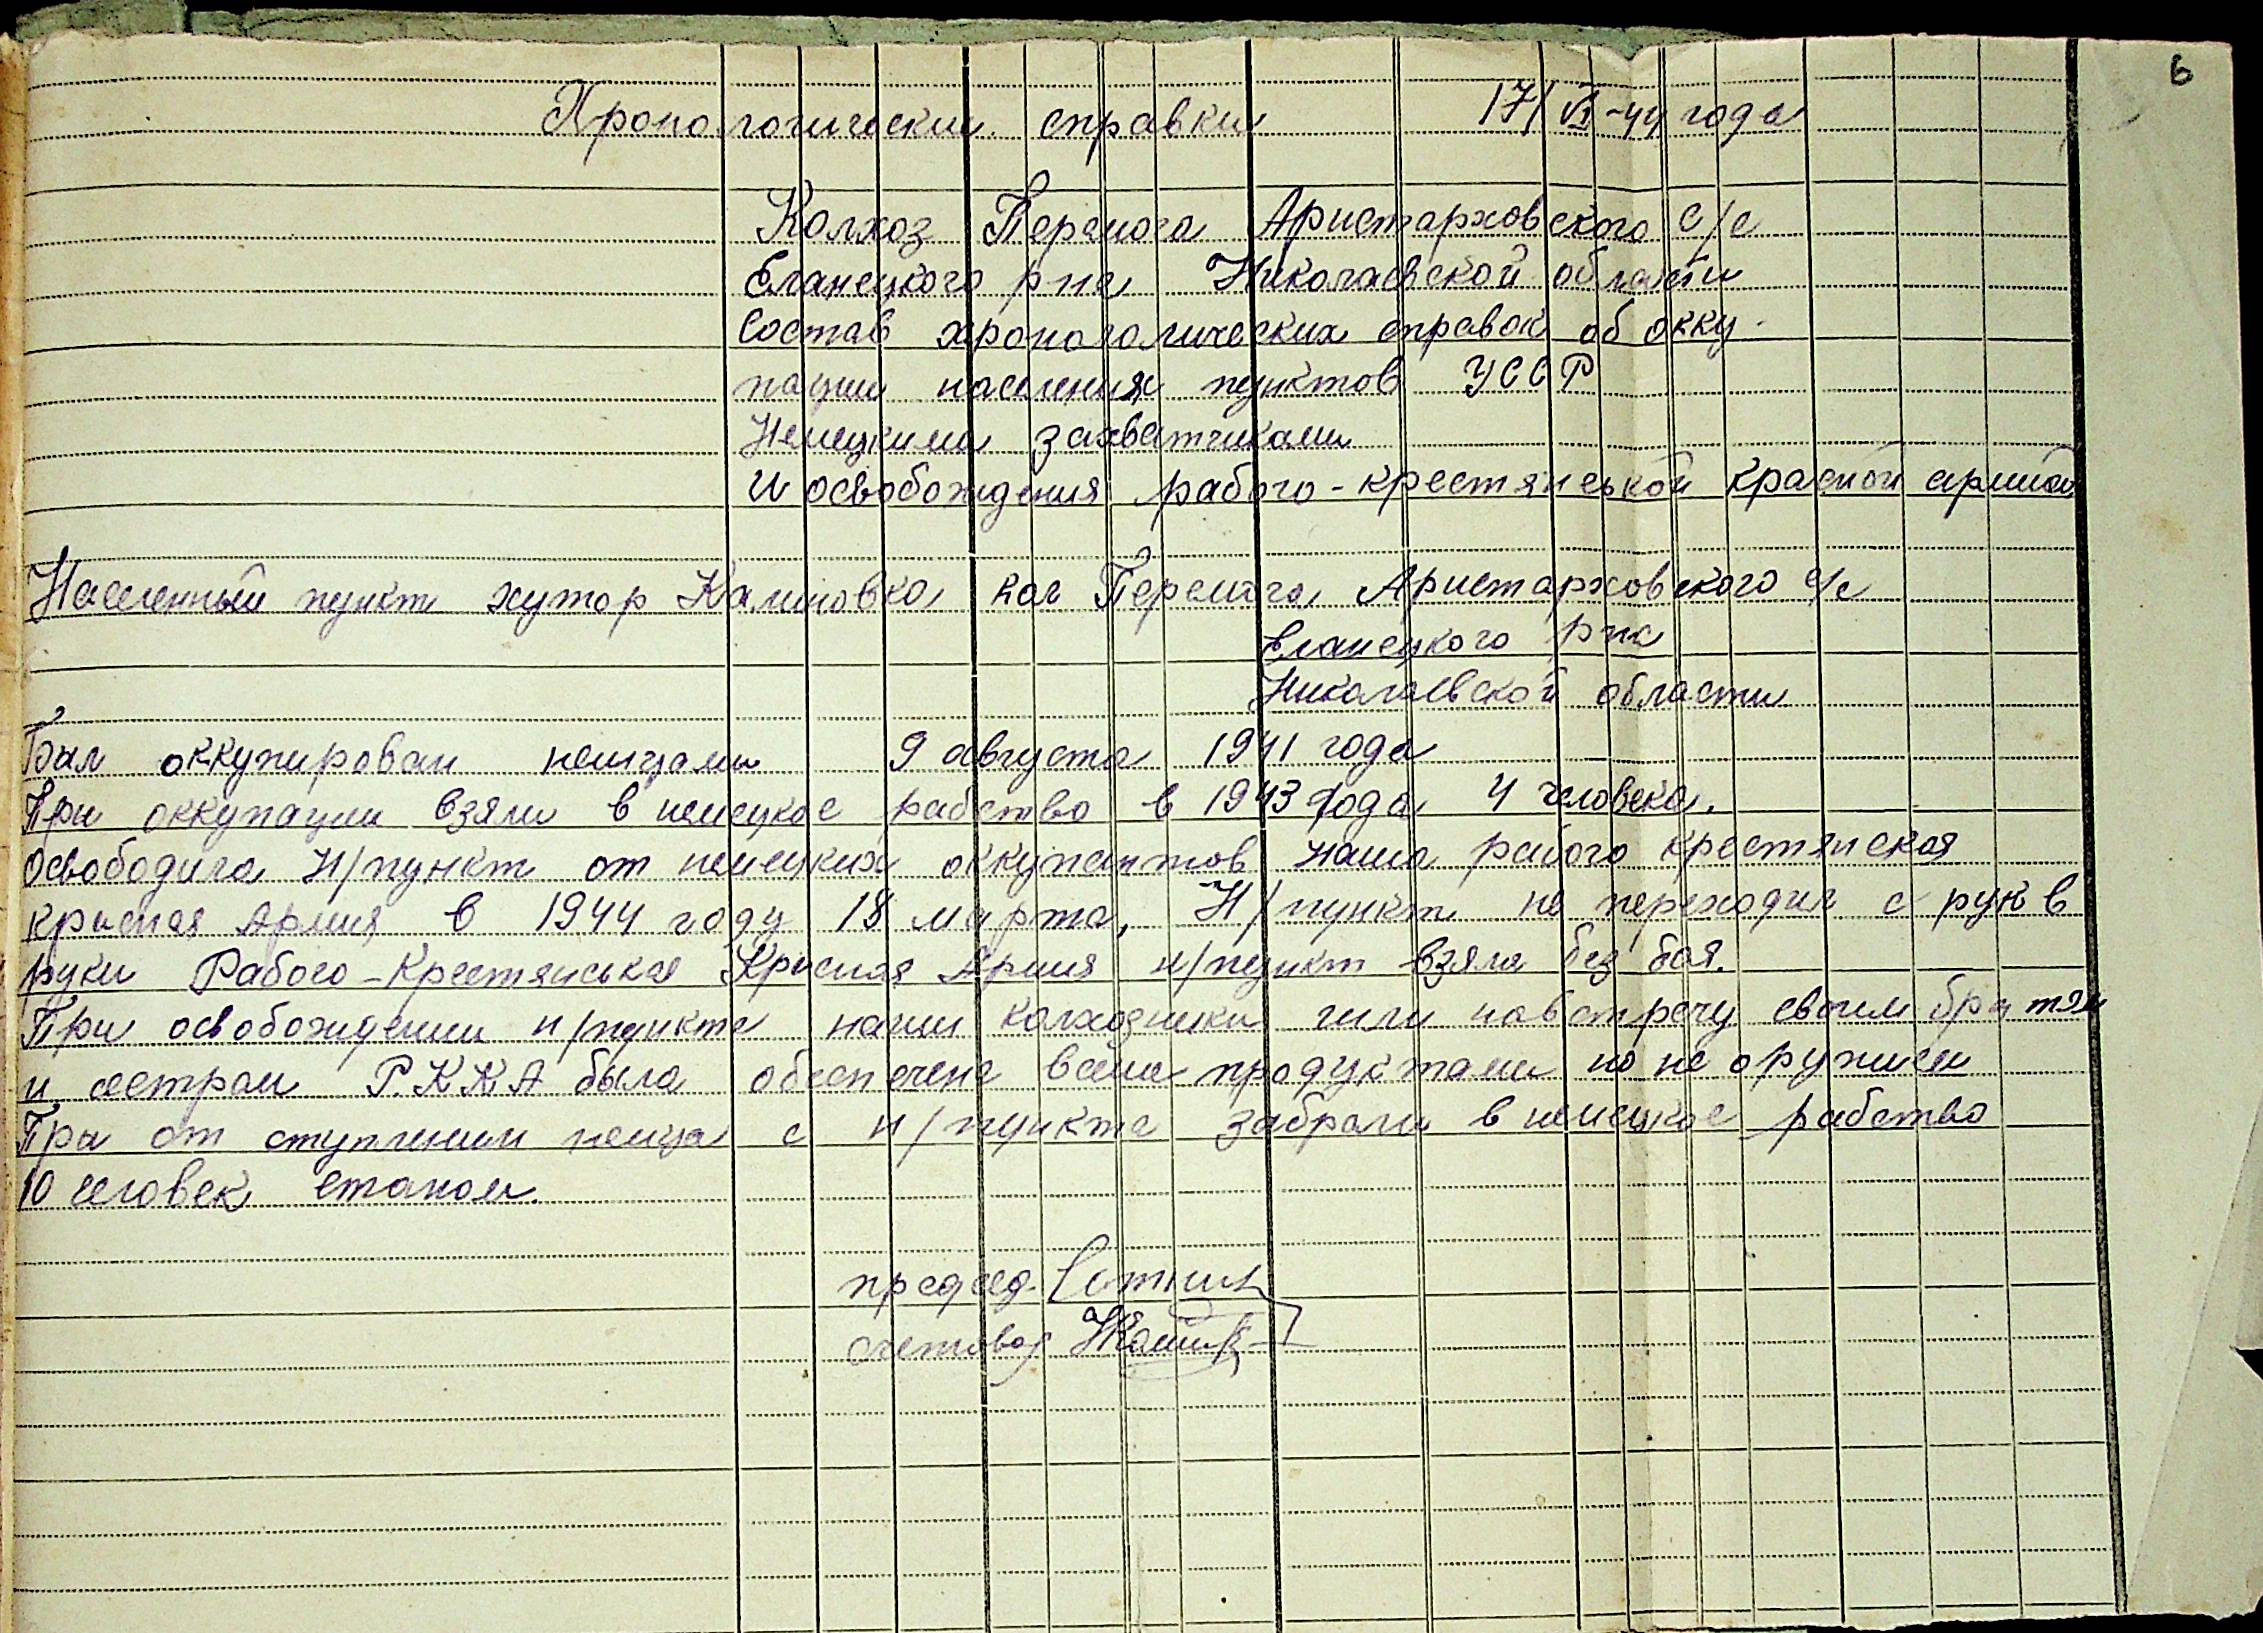 6
Хронологически справки 17/VI-44 года
Колхоз Перемога Аристарховского с/с
Еланецкого р-на Николаевской области
Состав хронологических справок об окку-
пации населених пунктов УССР
Немецкими захватчиками
и освобождения рабочо-крестянськой красной армией
Населенный пункт хутор Калиновка кол Перемога Аристарховского с/с
Еланецкого р-на
Николаевской области
Был оккупирован немцами 9 августа 1941 года
При оккупации взяли в немецкое рабство в 1943 года 4 человека.
Освободила Н/пункт от немецких оккупантов наша рабочо крестянская
красная Армия в 1944 году 18 марта, Н/пункт не переходил с рук в
руки Рабочо-Крестянськая Красная Армия н/пункт взяла без боя.
При освобождении н/пункта наши колхозники шли навстречу своим братям
и сестрам Р.К.К.А была обеспечена всеми продуктами но не оружием
При от ступлении немца с н/пункта забрали в немецкое рабство
10 человек етапом.
председ. Сотник
счетовод